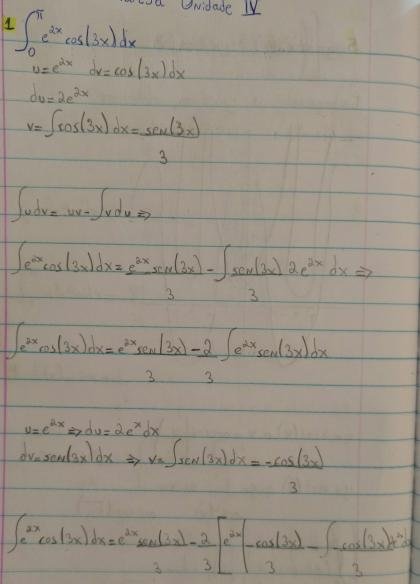 Unidade IV
1 ∫₀^π e^{2x} cos(3x) dx
u = e^{2x} dv = cos(3x) dx
du = 2e^{2x}
v = ∫cos(3x) dx = sen(3x)/3
∫u dv = uv - ∫v du ⇒
∫e^{2x} cos(3x) dx = e^{2x} sen(3x)/3 - ∫ sen(3x)/3 2e^{2x} dx ⇒
∫e^{2x} cos(3x) dx = e^{2x} sen(3x)/3 - 2/3 ∫e^{2x} sen(3x) dx
u = e^{2x} ⇒ du = 2e^x dx
dv = sen(3x) dx ⇒ v = ∫sen(3x) dx = -cos(3x)/3
∫e^{2x} cos(3x) dx = e^{2x} sen(3x)/3 - 2/3 [e^{2x} (-cos(3x)/3 - ∫-cos(3x)/3